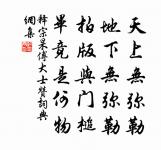 天上無彌勒
地下無彌勒
拍版與門槌
畢竟是何物
釋宗杲傅大士贊詞典
網集